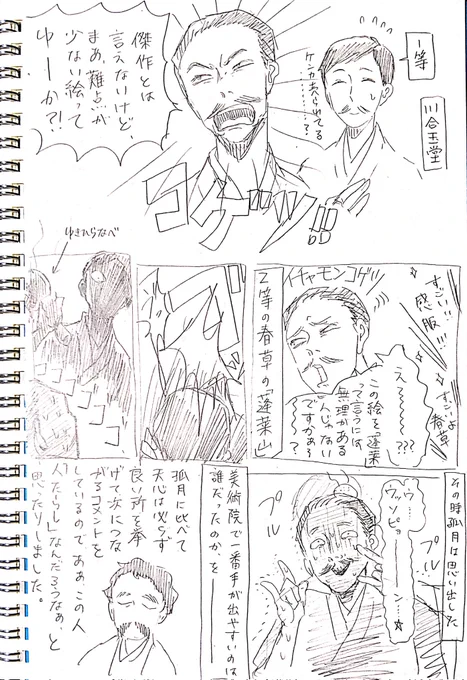 1等
川合玉堂
ケンカ売られてる
………？
傑作とは
言えないけど、
まあ、難点が
少ない絵って
ゆーか?!
コゲツッ!!
すごい!!
感服!!!
すごいよ
春草
イチャモンコゲツ
え〜〜〜???
この絵を「蓬莱」
って言うには
無理がある
んじゃない
ですかぁ
〜〜？
2等の春草の「蓬莱山」
ゆきひらなべ
ゴゴゴゴゴ
その時孤月は思い出した
ウ…
ウッソピョーーン…☆
プル
プル
美術院で一番手が出やすいのは
誰だったのか、を
孤月に比べて
天心は必らず
良い所を挙
げて次につな
がるコメントを
しているので、ああこの人
「人たらし」なんだろうなぁ、と
思ったりしました。